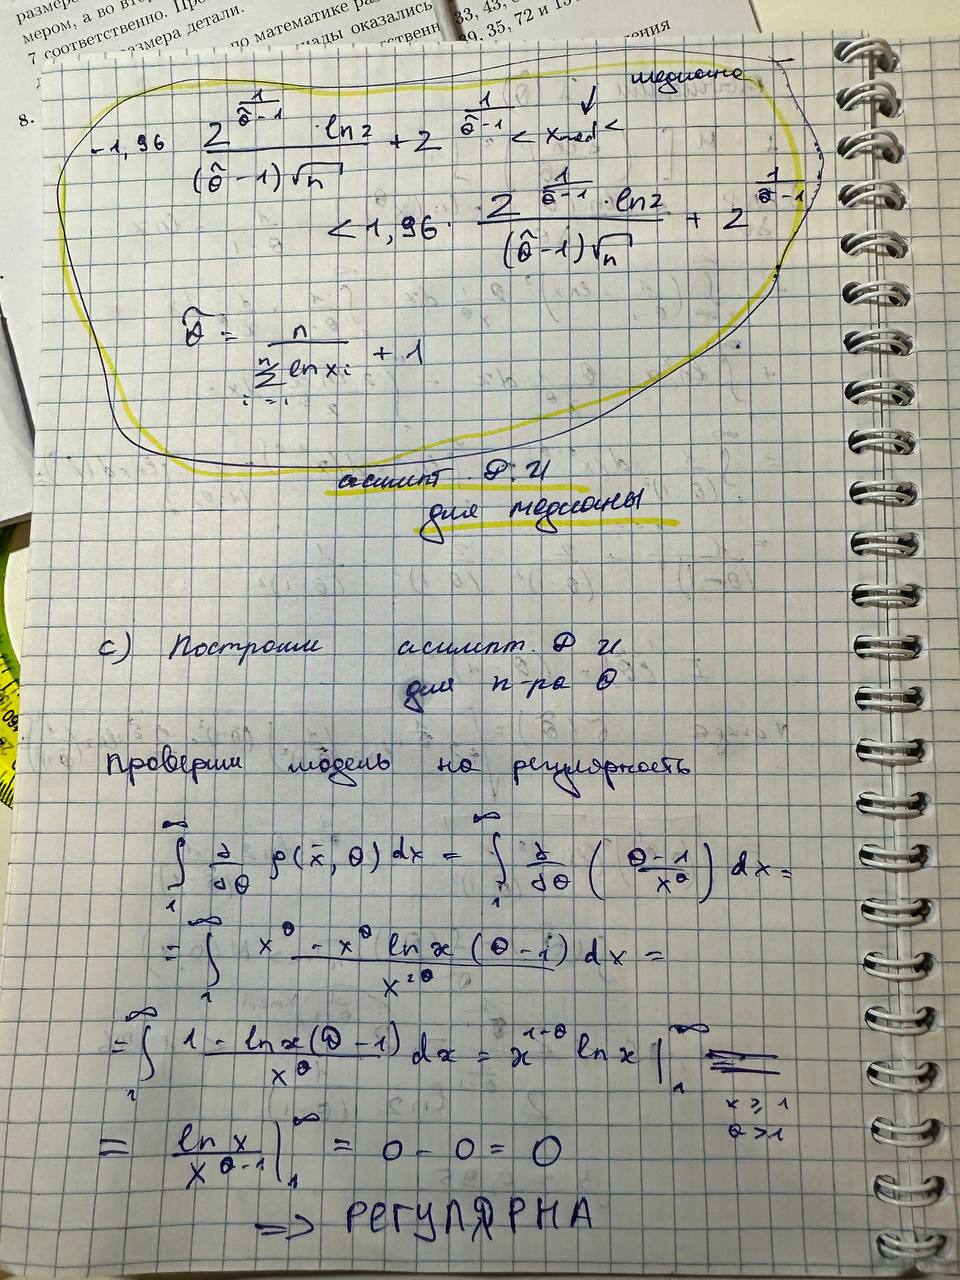 размер
мером, а во втор
7 соответственно. Пр
размера детали.
по математике раз
иады оказались
ственн
33, 43,
39, 35, 72 и
8.
медиана
-1,96 \frac{2^{\frac{1}{\hat{θ}-1}} · ln2}{(\hat{θ}-1)\sqrt{n}} + 2^{\frac{1}{\hat{θ}-1}} < x_{med} <
< 1,96 · \frac{2^{\frac{1}{\hat{θ}-1}} · ln2}{(\hat{θ}-1)\sqrt{n}} + 2^{\frac{1}{\hat{θ}-1}}
\tilde{θ} = \frac{n}{\sum_{i=1}^{n} ln x_i} + 1
асимпт. ДИ
для медианы
c) Построим асимпт. ДИ
для п-ра θ
Проверим модель на регулярность
\int_1^∞ \frac{∂}{∂θ} ρ(\bar{x}, θ) dx = \int_1^∞ \frac{∂}{∂θ} (\frac{θ-1}{x^θ}) dx =
= \int_1^∞ \frac{x^θ - x^θ ln x (θ-1)}{x^{2θ}} dx =
= \int_1^∞ \frac{1 - ln x (θ-1)}{x^θ} dx = x^{1-θ} ln x |_1^∞ =
x ≥ 1
θ > 1
= \frac{ln x}{x^{θ-1}} |_1^∞ = 0 - 0 = 0
=> РЕГУЛЯРНА